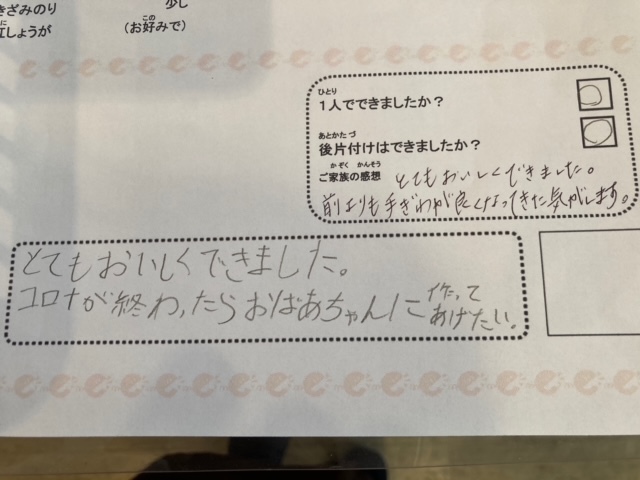 きざみのり
少し
紅しょうが
(お好みで)
1人でできましたか？
後片付けはできましたか？
ご家族の感想 とてもおいしくできました。
前よりも手ぎわが良くなってきた気がします。
とてもおいしくできました。
コロナが終わったらおばあちゃんに作って
あげたい。